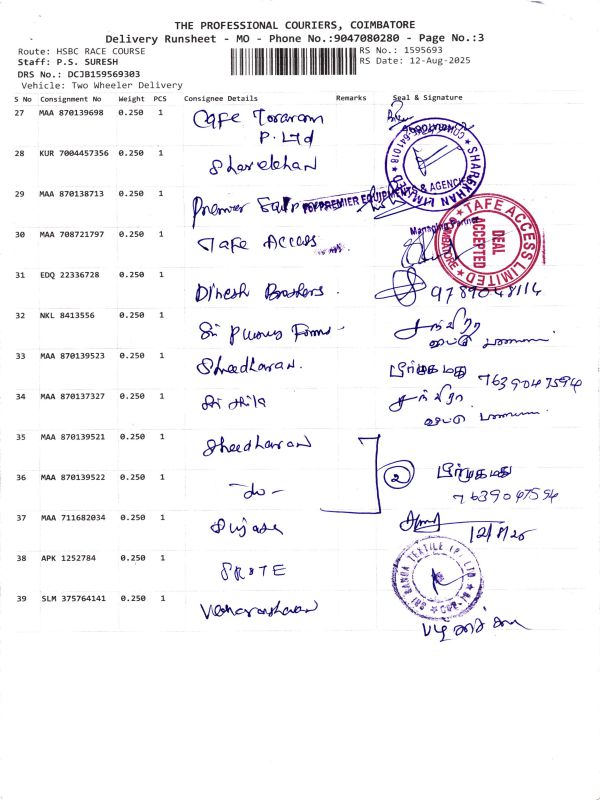 THE PROFESSIONAL COURIERS, COIMBATORE
Delivery Runsheet - MO - Phone No.:9047080280 - Page No.:3
Route: HSBC RACE COURSE
RS No.: 1595693
Staff: P.S. SURESH
RS Date: 12-Aug-2025
DRS No.: DCJB159569303
Vehicle: Two Wheeler Delivery
S No Consignment No Weight PCS Consignee Details Remarks Seal & Signature
27 MAA 870139698 0.250 1 Cafe
P. Ltd
28 KUR 7004457356 0.250 1 Sharekhan
SHAREKHAN 641018
29 MAA 870138713 0.250 1 Premier
For PREMIER EQUIPMENTS & AGENCIES
Managing Partner
30 MAA 708721797 0.250 1 Tafe Access
TAFE ACCESS LIMITED
COIMBATORE
DEAL ACCEPTED
31 EDQ 22336728 0.250 1 Dinesh Brothers.
9789048114
32 NKL 8413556 0.250 1 Sri
33 MAA 870139523 0.250 1 Shreedharan.
7639047594
34 MAA 870137327 0.250 1 Sri
35 MAA 870139521 0.250 1 Shreedharan
2
36 MAA 870139522 0.250 1 -do-
7639047594
37 MAA 711682034 0.250 1
12/8/25
38 APK 1252784 0.250 1
SRI RANGA TEXTILE (P) LTD
39 SLM 375764141 0.250 1